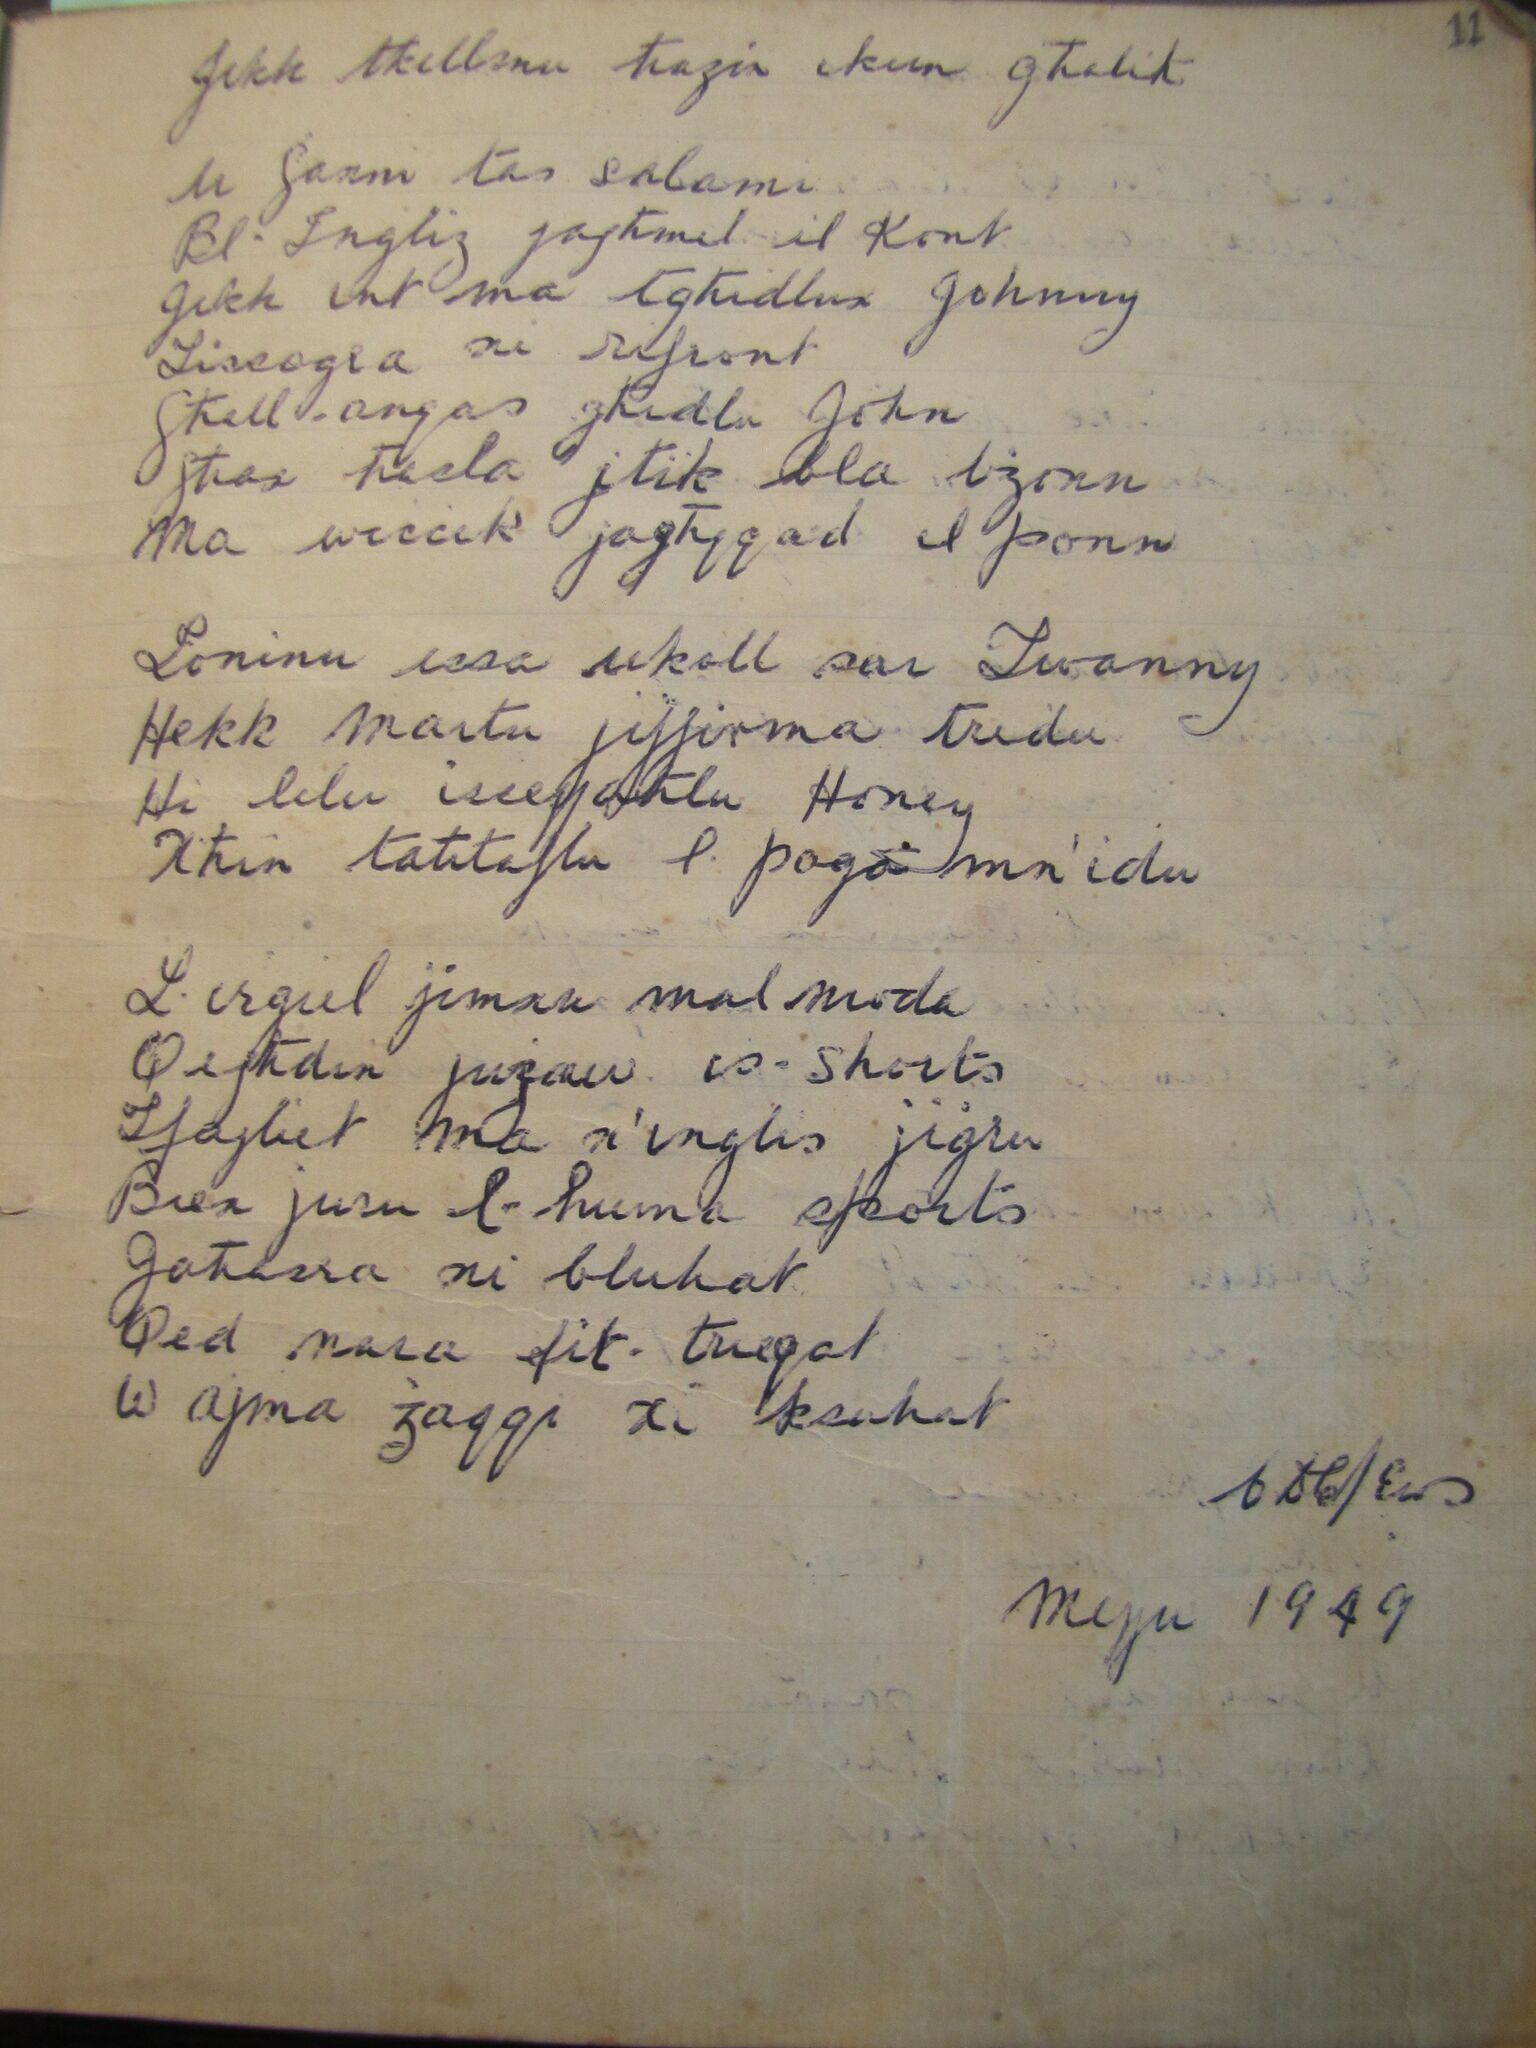 11
Jekk tkellmu hazin ikun ghalik
U Ġaxni tas salami
Bl-Ingliz jaghmel il Kont
Jekk int ma tghidlux Johnny
Jisseogra xi rifront
Ghall-anqas ghidlu John
Ghax hasla jtik bla bżonn
Ma wiċċek jaghqqad il ponn
Loninu issa ukoll sar Iwanny
Hekk Martu jiffirma tridu
Hi lilu issejjahlu Honey
Xhin tahtaflu l-paga mn'idu
L-irgiel jimxu mal moda
Qeghdin jużaw is-Shorts
Tfajliet ma x'inglis jiġru
Biex juru l-huma sports
Jahasra xi bluhat
Qed nara fit-triqat
W ajma żaqqi xi ksuhat
Mejju 1949